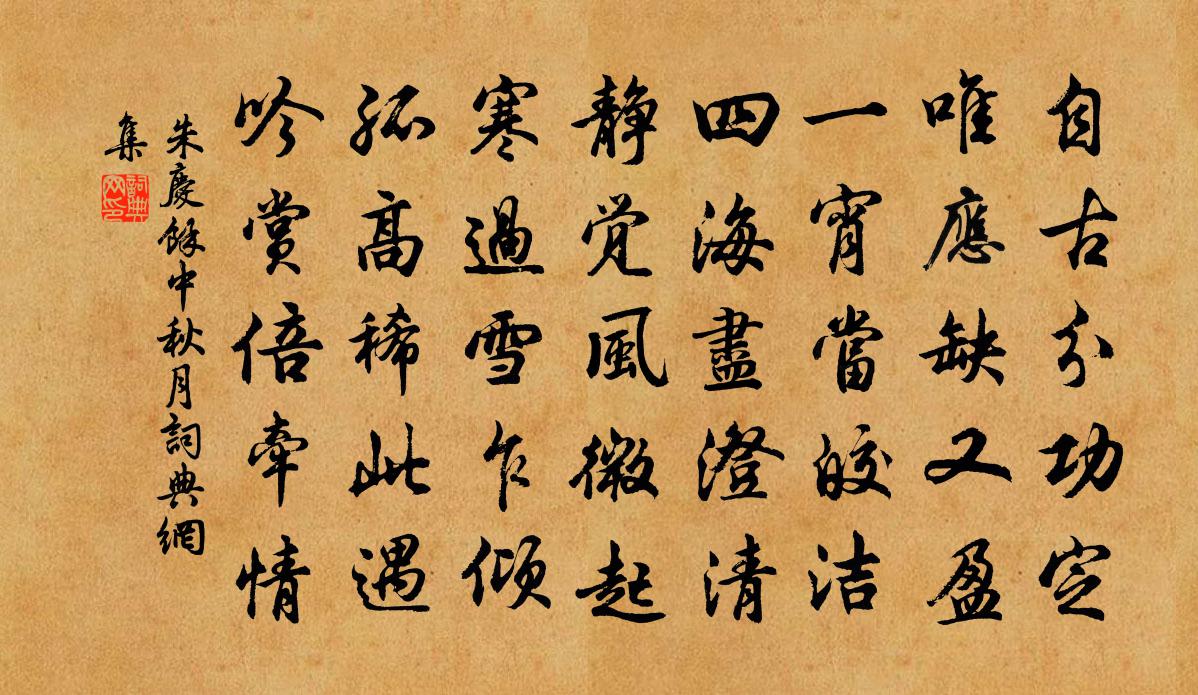 自古分功定
唯應缺又盈
一宵當皎洁
四海盡澄清
靜覺風微起
寒過雪乍傾
孤高稀此遇
吟賞倍牽情
朱慶餘中秋月詞典網
集
詞典
网印